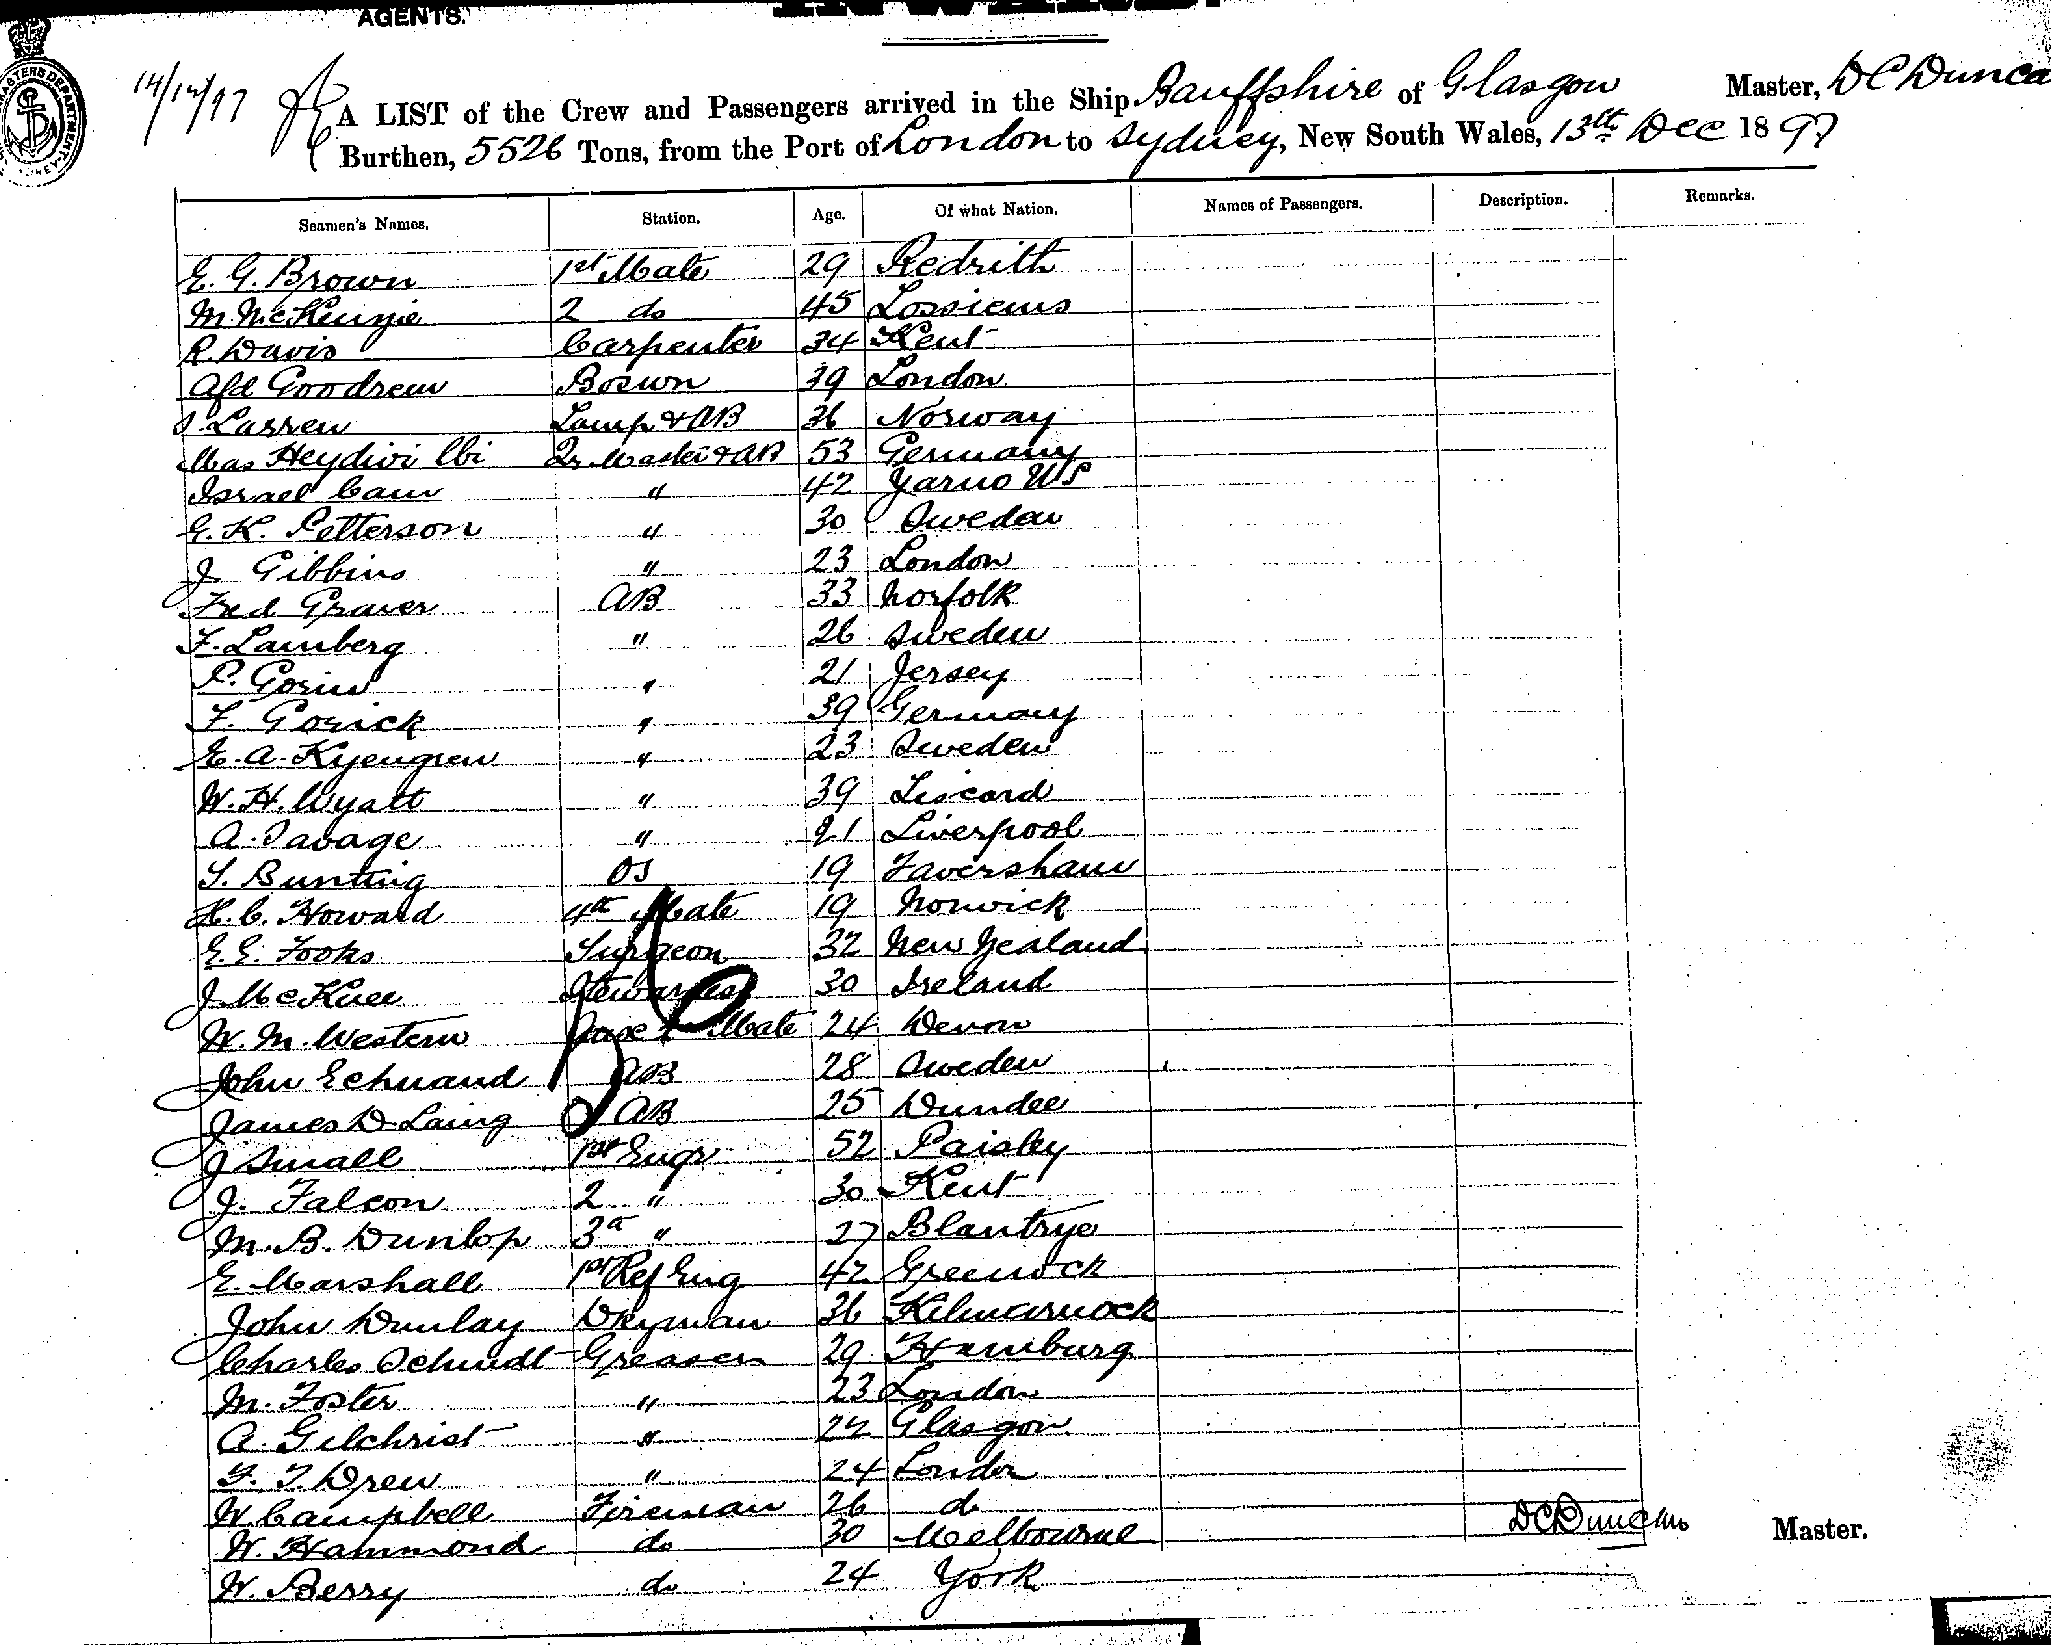 AGENTS.
14/12/97
A LIST of the Crew and Passengers arrived in the Ship Banffshire of Glasgow Master, D C Dunca
Burthen, 5526 Tons, from the Port of London to Sydney, New South Wales, 13th Dec 1897
Seamen's Names. Station. Age. Of what Nation. Names of Passengers. Description. Remarks.
E. G. Brown 1st Mate 29 Redrith
M. McKenzie 2 do 45 Lossiems
R. Davis Carpenter 34 Kent
Alfd Goodrem Bosun 39 London
Larsen Lamp & AB 36 Norway
Qr Master & AB 53 Germany
Israel Cam " 42 US
E. K. Petterson " 30 Sweden
J Gibbins " 23 London
Fred Graver AB 33 Norfolk
F. Lamberg " 26 Sweden
P. Gorin " 21 Jersey
F. Gorick " 39 Germany
E. A. Kyengren " 23 Sweden
W. H. Wyatt " 39 Liscard
A. Savage " 21 Liverpool
S. Bunting OS 19 Faversham
H. C. Howard 4th Mate 19 Norwick
E. E. Fooks Surgeon 32 New Zealand
J McKnee Stewardess 30 Ireland
W. M. Western Mate 24 Devon
John Echnand AB 28 Sweden
James D Laing AB 25 Dundee
J Small 1st Engr 52 Paisley
J. Falcon 2 " 30 Kent
M. B. Dunlop 3d " 27 Blantrye
E. Marshall 1st Ref Eng 42 Greenock
John Dunlay Dkyman 36 Kilmarnock
Charles Schmdt Greaser 29 Hamburg
M. Foster " 23 London
A. Gilchrist " 22 Glasgow
F. T. Drew " 24 London
W. Campbell Fireman 26 do
W. Hammond do 30 Melbourne
W. Berry do 24 York
D C Duncan Master.